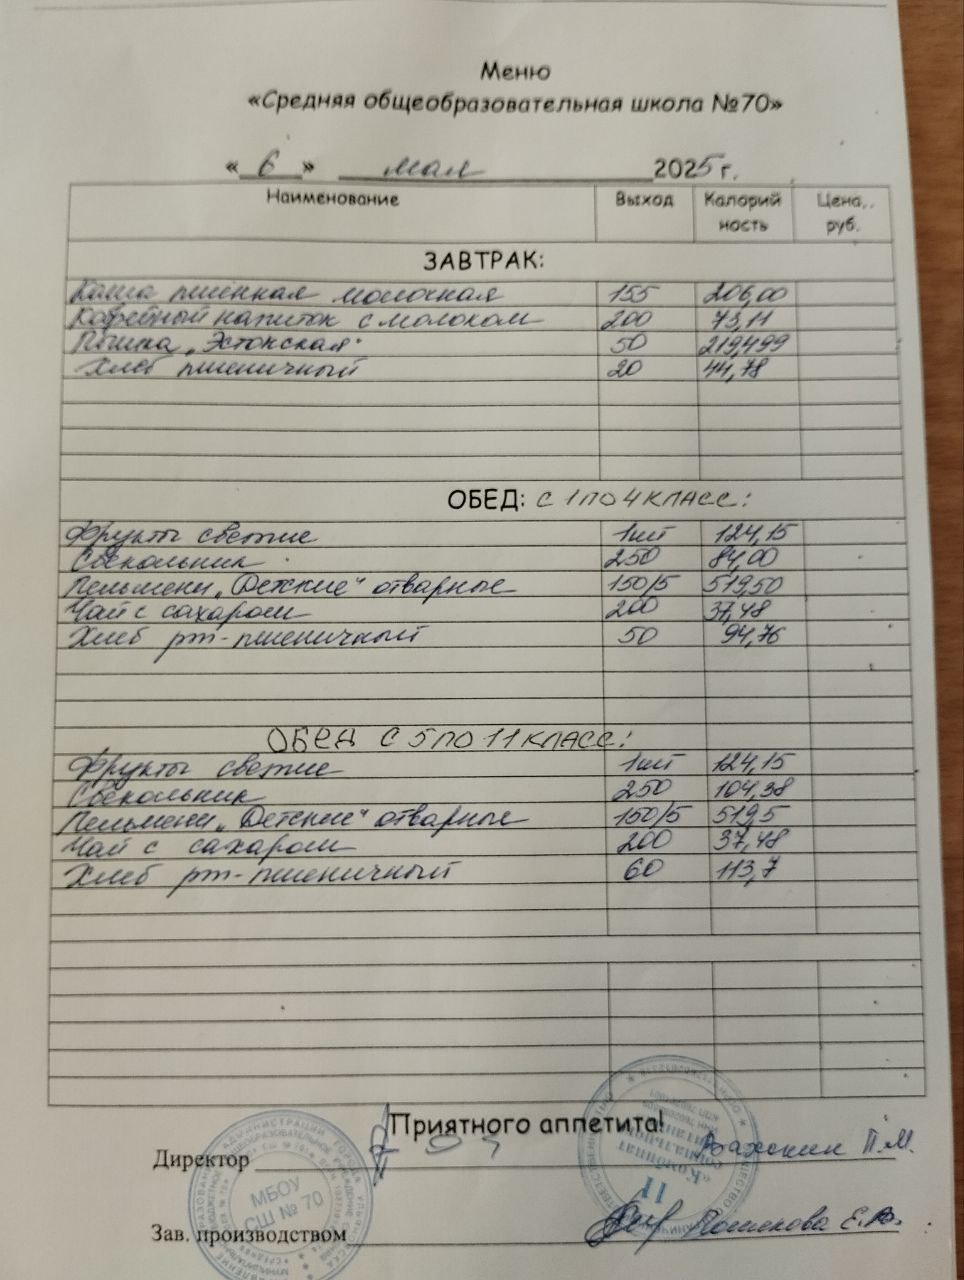 Меню
«Средняя общеобразовательная школа №70»
« 6 » мая 2025 г.
Наименование Выход Калорийность Цена, руб.
ЗАВТРАК:
Каша пшенная молочная 155 206,00
Кофейный напиток с молоком 200 73,11
Пышка „Эстонская" 50 219,499
Хлеб пшеничный 20 44,78
ОБЕД: С 1 ПО 4 КЛАСС:
Фрукты свежие 1шт 124,15
Свекольник 250 84,00
Пельмени „Детские" отварные 150/5 519,50
Чай с сахаром 200 37,48
Хлеб рж-пшеничный 50 94,76
ОБЕД С 5 ПО 11 КЛАСС:
Фрукты свежие 1шт 124,15
Свекольник 250 104,38
Пельмени „Детские" отварные 150/5 519,5
Чай с сахаром 200 37,48
Хлеб рж-пшеничный 60 113,7
Приятного аппетита!
Директор П.М.
МБОУ
СШ № 70
"Комбинат
социального
питания
11
Зав. производством Е.В.